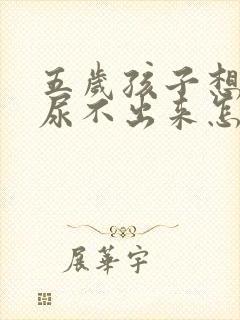 五岁孩子想
尿不出来怎
展华宇